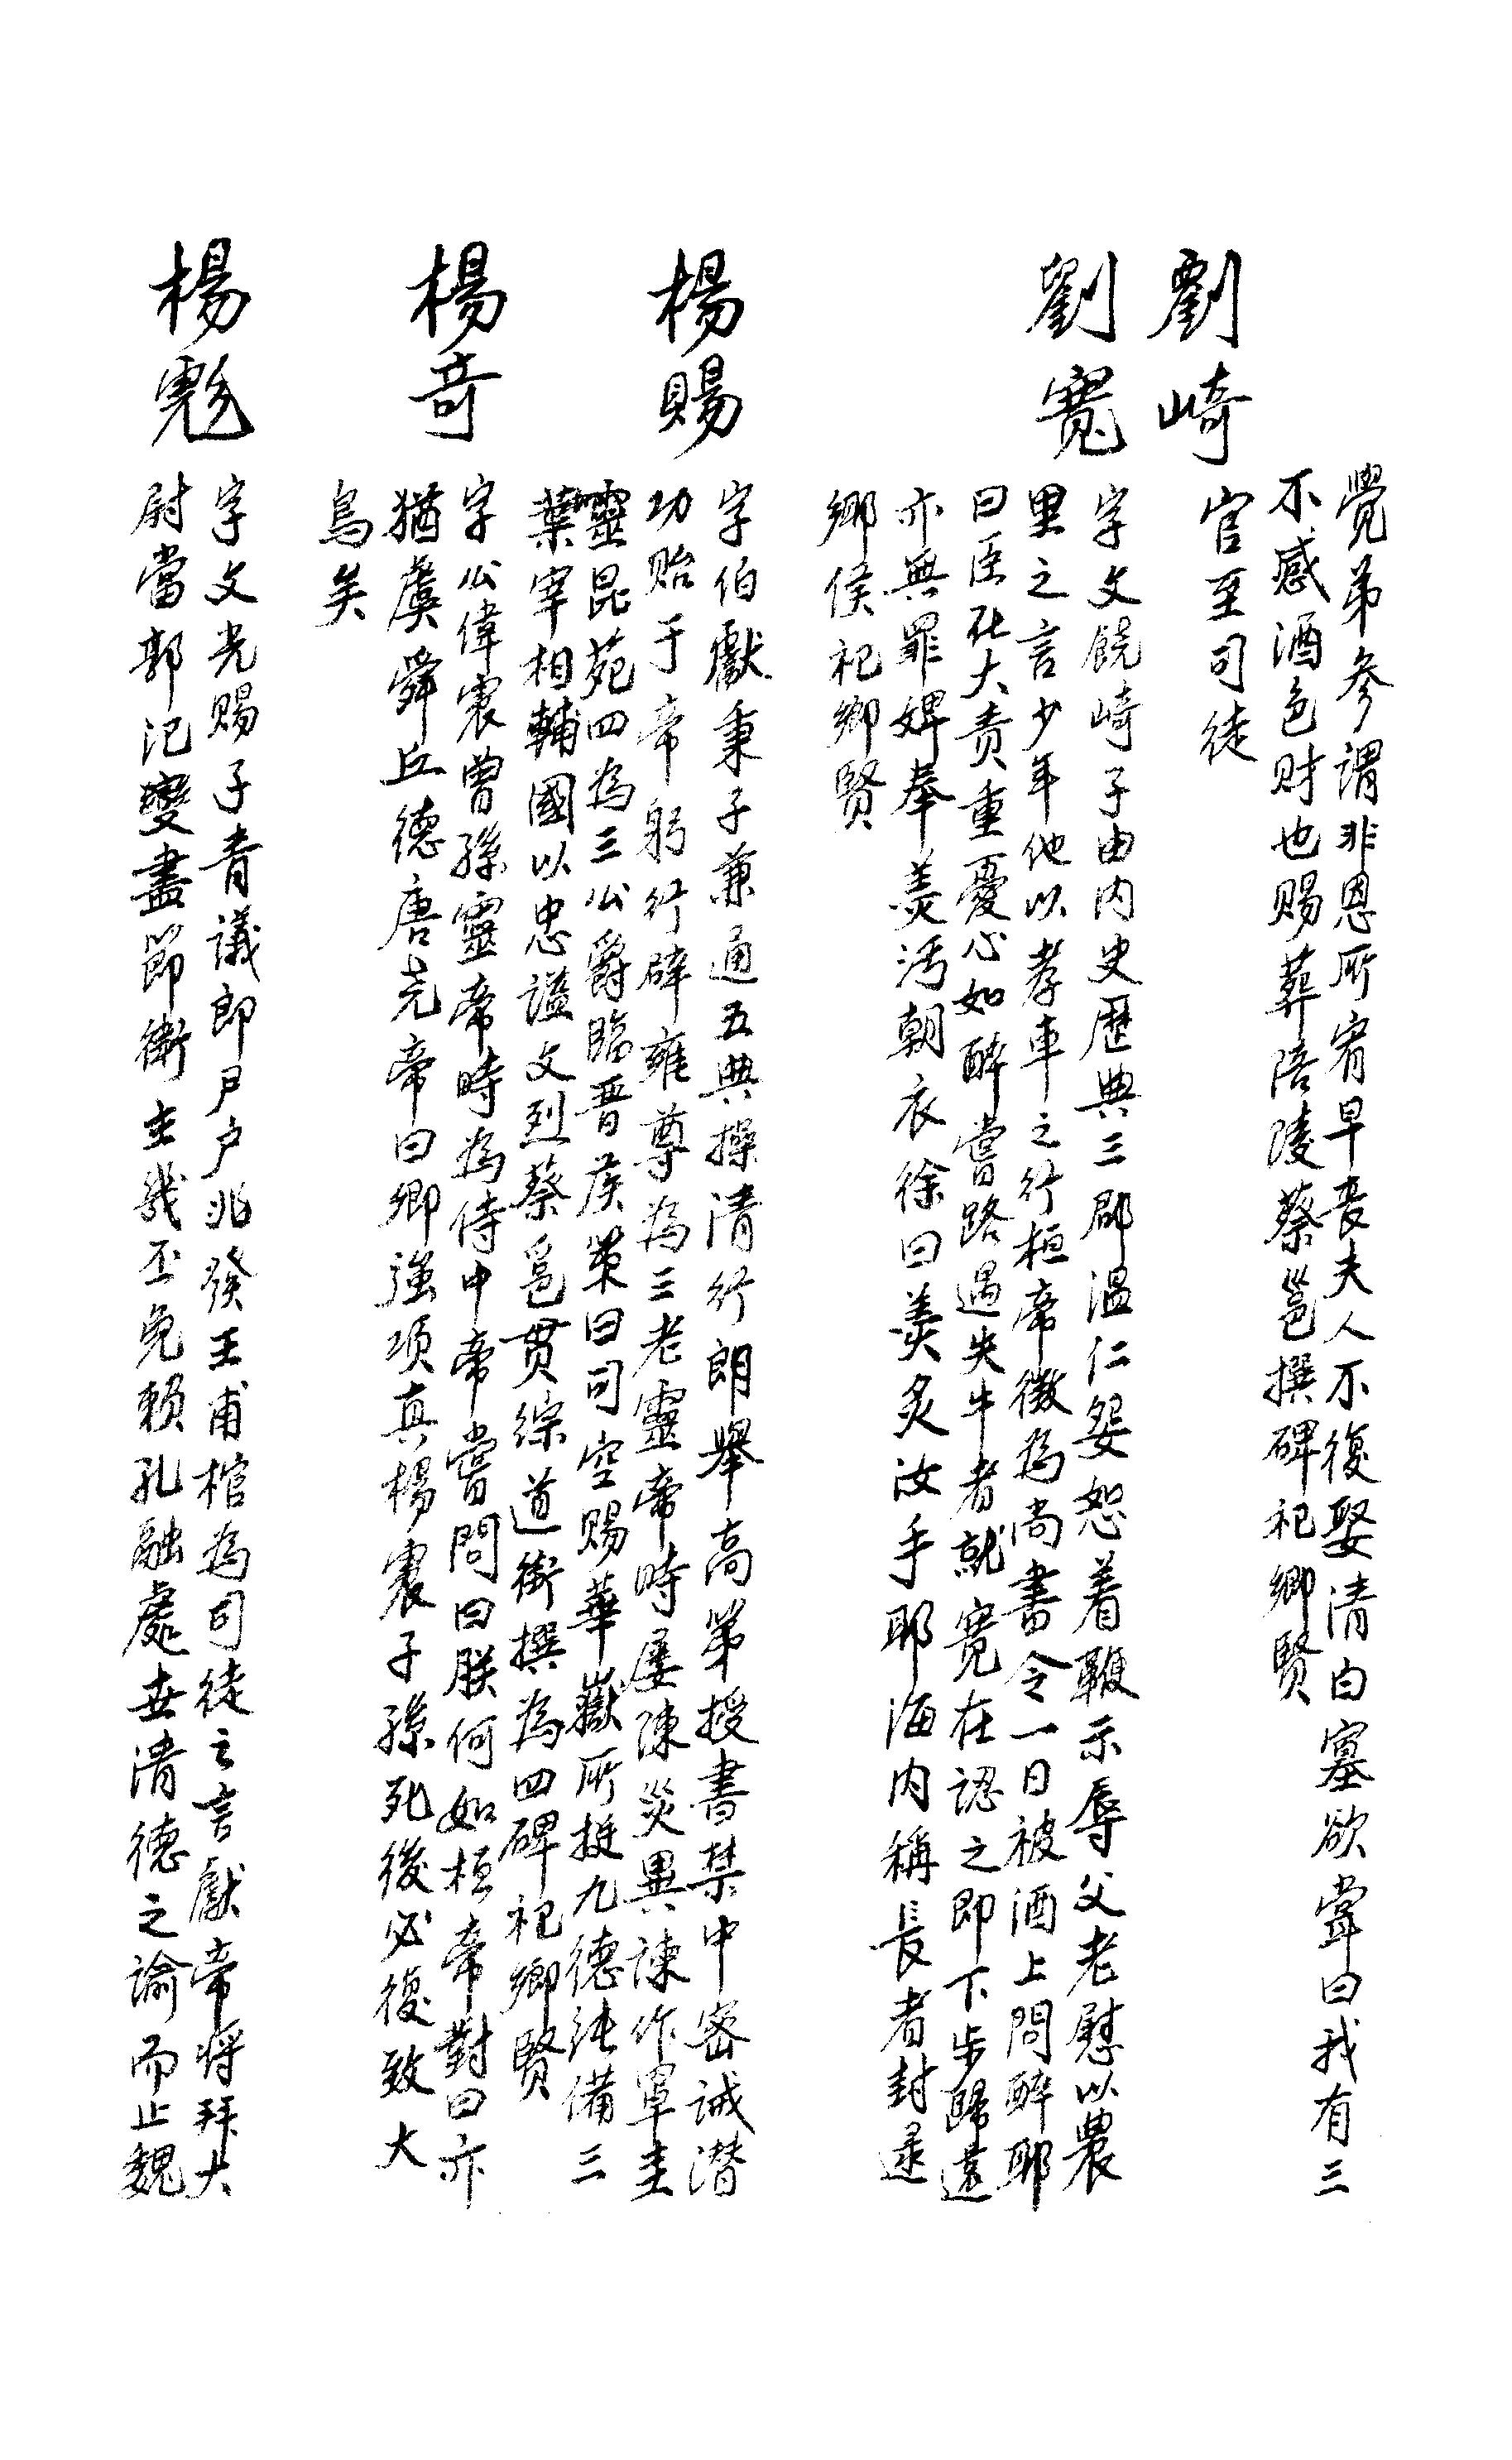 覺弟參謂非恩所宥早喪夫人不復娶清白寡欲嘗曰我有三
不惑酒色财也賜葬陪陵蔡邕撰碑祀鄉賢
劉崎
官至司徒
劉寬
字文饒崎子由内史歷典三郡溫仁怨恕着鞭示辱父老慰以農
里之言少年他以孝車之行桓帝徵為尚書令一日被酒上問醉耶
曰臣任大责重憂心如醉嘗路遇失牛者就寬在認之即下步歸遠
亦無罪婢奉羹污朝衣徐曰羹炙汝手耶海内稱長者封逯
鄉侯祀鄉賢
楊賜
字伯獻秉子兼通五典操清行朗舉高第授書禁中密誠潛
功贻于帝躬行辟雍尊為三老靈帝時屡陳災異諫作罩圭
靈昆苑四為三公爵臨晋侯策曰司空賜華嶽所挺九德纯備三
葉宰相輔國以忠謚文烈蔡邕贯综道術撰為四碑祀鄉賢
楊奇
字公偉震曾孫靈帝時為侍中帝嘗問曰朕何如桓帝對曰亦
猶虞舜丘德唐尧帝曰卿强项真楊震子孫死後必復致大
鳥矣
楊彪
字文先赐子青議郎尸户兆發王甫棺為司徒之言獻帝将拜大
尉當郭汜變盡節衛主幾丕免賴孔融處世清德之諭而止魏